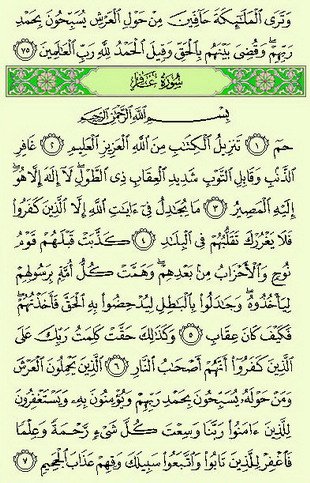 وَتَرَى الْمَلَٰٓئِكَةَ حَآفِّينَ مِنْ حَوْلِ الْعَرْشِ يُسَبِّحُونَ بِحَمْدِ
رَبِّهِمْ ۖ وَقُضِىَ بَيْنَهُم بِالْحَقِّ وَقِيلَ الْحَمْدُ لِلَّهِ رَبِّ الْعَٰلَمِينَ ٧٥
سُورَةُ غَافِرٍ
بِسْمِ اللَّهِ الرَّحْمَٰنِ الرَّحِيمِ
حمٓ ١ تَنزِيلُ الْكِتَٰبِ مِنَ اللَّهِ الْعَزِيزِ الْعَلِيمِ ٢ غَافِرِ
الذَّنۢبِ وَقَابِلِ التَّوْبِ شَدِيدِ الْعِقَابِ ذِى الطَّوْلِ ۖ لَآ إِلَٰهَ إِلَّا هُوَ ۖ
إِلَيْهِ الْمَصِيرُ ٣ مَا يُجَٰدِلُ فِىٓ ءَايَٰتِ اللَّهِ إِلَّا الَّذِينَ كَفَرُوا۟
فَلَا يَغْرُرْكَ تَقَلُّبُهُمْ فِى الْبِلَٰدِ ٤ كَذَّبَتْ قَبْلَهُمْ قَوْمُ
نُوحٍ وَالْأَحْزَابُ مِنۢ بَعْدِهِمْ ۖ وَهَمَّتْ كُلُّ أُمَّةٍۭ بِرَسُولِهِمْ
لِيَأْخُذُوهُ ۖ وَجَٰدَلُوا۟ بِالْبَٰطِلِ لِيُدْحِضُوا۟ بِهِ الْحَقَّ فَأَخَذْتُهُمْ ۖ
فَكَيْفَ كَانَ عِقَابِ ٥ وَكَذَٰلِكَ حَقَّتْ كَلِمَتُ رَبِّكَ عَلَى
الَّذِينَ كَفَرُوٓا۟ أَنَّهُمْ أَصْحَٰبُ النَّارِ ٦ الَّذِينَ يَحْمِلُونَ الْعَرْشَ
وَمَنْ حَوْلَهُۥ يُسَبِّحُونَ بِحَمْدِ رَبِّهِمْ وَيُؤْمِنُونَ بِهِۦ وَيَسْتَغْفِرُونَ
لِلَّذِينَ ءَامَنُوا۟ رَبَّنَا وَسِعْتَ كُلَّ شَىْءٍ رَّحْمَةً وَعِلْمًا
فَاغْفِرْ لِلَّذِينَ تَابُوا۟ وَاتَّبَعُوا۟ سَبِيلَكَ وَقِهِمْ عَذَابَ الْجَحِيمِ ٧